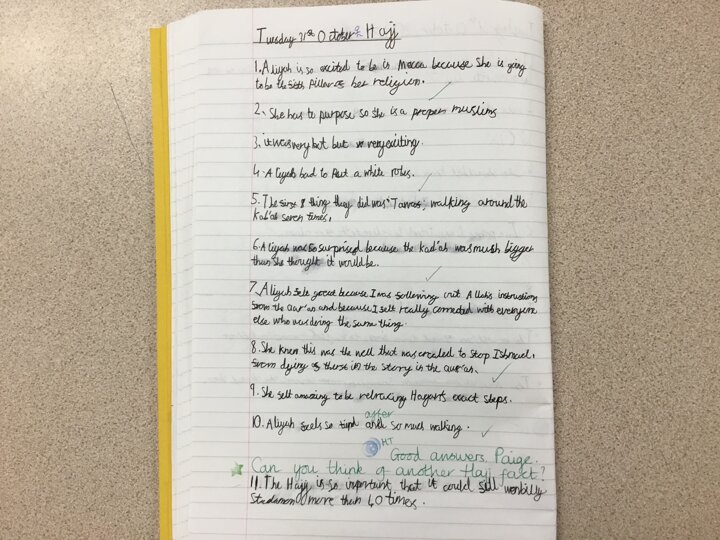 Tuesday 31st October Hajj
1. Aliyah is so excited to be is Mecca because she is going
to be the sixth pillar of her religion.
2. She has to purpose so she is a proper muslims
3. it was very hot but very exciting.
4. Aliyah had to put a white robes.
5. The first thing they did was Tawaf, walking around the
Kab'ah seven times.
6. Aliyah was so surprised because the kab'ah was much bigger
than she thought it would be.
7. Aliyah felt great because I was following Allah's instructions
from the Qur'an and because I felt really connected with everyone
else who was doing the same thing.
8. She knew this was the well that was created to stop Ishmael,
from dying of thirst in the story in the Qur'an.
9. She felt amazing to be retracing Hagar's exact steps.
after
10. Aliyah feels so so much walking.
HT
Good answers, Paige.
Can you think of another Hajj fact?
11. The Hajj is so important, that it could still
more than 40 times.